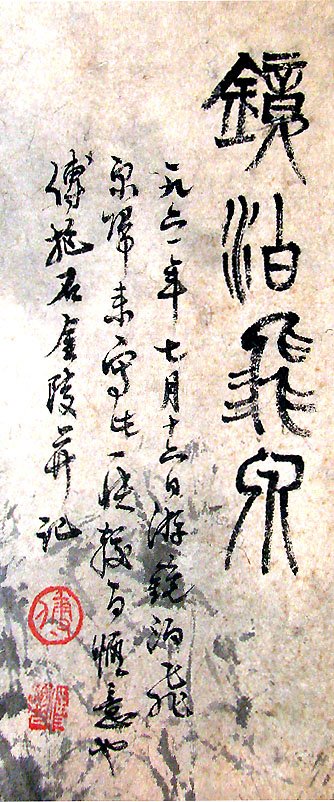 鏡泊飛泉
一九六一年七月十六日游鏡泊飛
泉歸来寫此一張較为愜意也
傅抱石金陵并記
傅